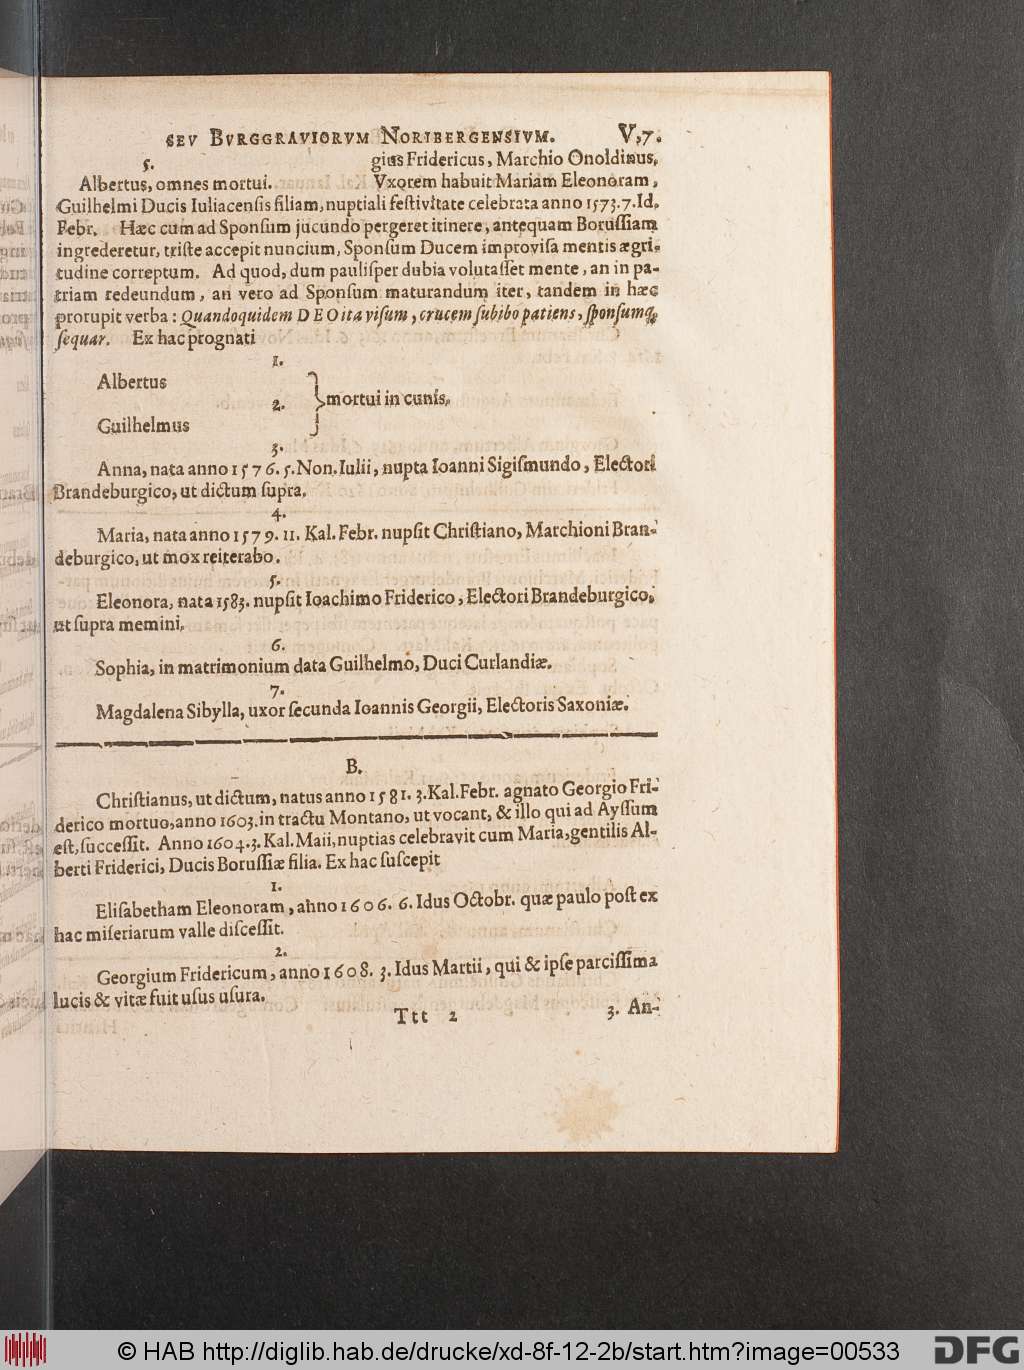 SEV BVRGGRAVIORVM NORIBERGENSIVM. V,7.
5. gius Fridericus, Marchio Onoldinus,
Albertus, omnes mortui. Vxorem habuit Mariam Eleonoram,
Guilhelmi Ducis Iuliacensis filiam, nuptiali festivitate celebrata anno 1573.7.Id.
Febr. Hæc cum ad Sponsum jucundo pergeret itinere, antequam Borussiam
ingrederetur, triste accepit nuncium, Sponsum Ducem improvisa mentis ægri-
tudine correptum. Ad quod, dum paulisper dubia volutasset mente, an in pa-
triam redeundum, an vero ad Sponsum maturandum iter, tandem in hæc
prorupit verba: Quandoquidem DEO ita visum, crucem subibo patiens, sponsumq́;
sequar. Ex hac prognati
1.
Albertus
2. } mortui in cunis.
Guilhelmus
3.
Anna, nata anno 1576. 5. Non. Iulii, nupta Ioanni Sigismundo, Electori
Brandeburgico, ut dictum supra.
4.
Maria, nata anno 1579. 11. Kal. Febr. nupsit Christiano, Marchioni Bran-
deburgico, ut mox reiterabo.
5.
Eleonora, nata 1583. nupsit Ioachimo Friderico, Electori Brandeburgico,
ut supra memini.
6.
Sophia, in matrimonium data Guilhelmo, Duci Curlandiæ.
7.
Magdalena Sibylla, uxor secunda Ioannis Georgii, Electoris Saxoniæ.
B.
Christianus, ut dictum, natus anno 1581. 3. Kal. Febr. agnato Georgio Fri-
derico mortuo, anno 1603. in tractu Montano, ut vocant, & illo qui ad Ayssum
est, successit. Anno 1604. 3. Kal. Maii, nuptias celebravit cum Maria, gentilis Al-
berti Friderici, Ducis Borussiæ filia. Ex hac suscepit
1.
Elisabetham Eleonoram, anno 1606. 6. Idus Octobr. quæ paulo post ex
hac miseriarum valle discessit.
2.
Georgium Fridericum, anno 1608. 3. Idus Martii, qui & ipse parcissima
lucis & vitæ fuit usus usura.
Ttt 2 3. An-
© HAB http://diglib.hab.de/drucke/xd-8f-12-2b/start.htm?image=00533
DFG